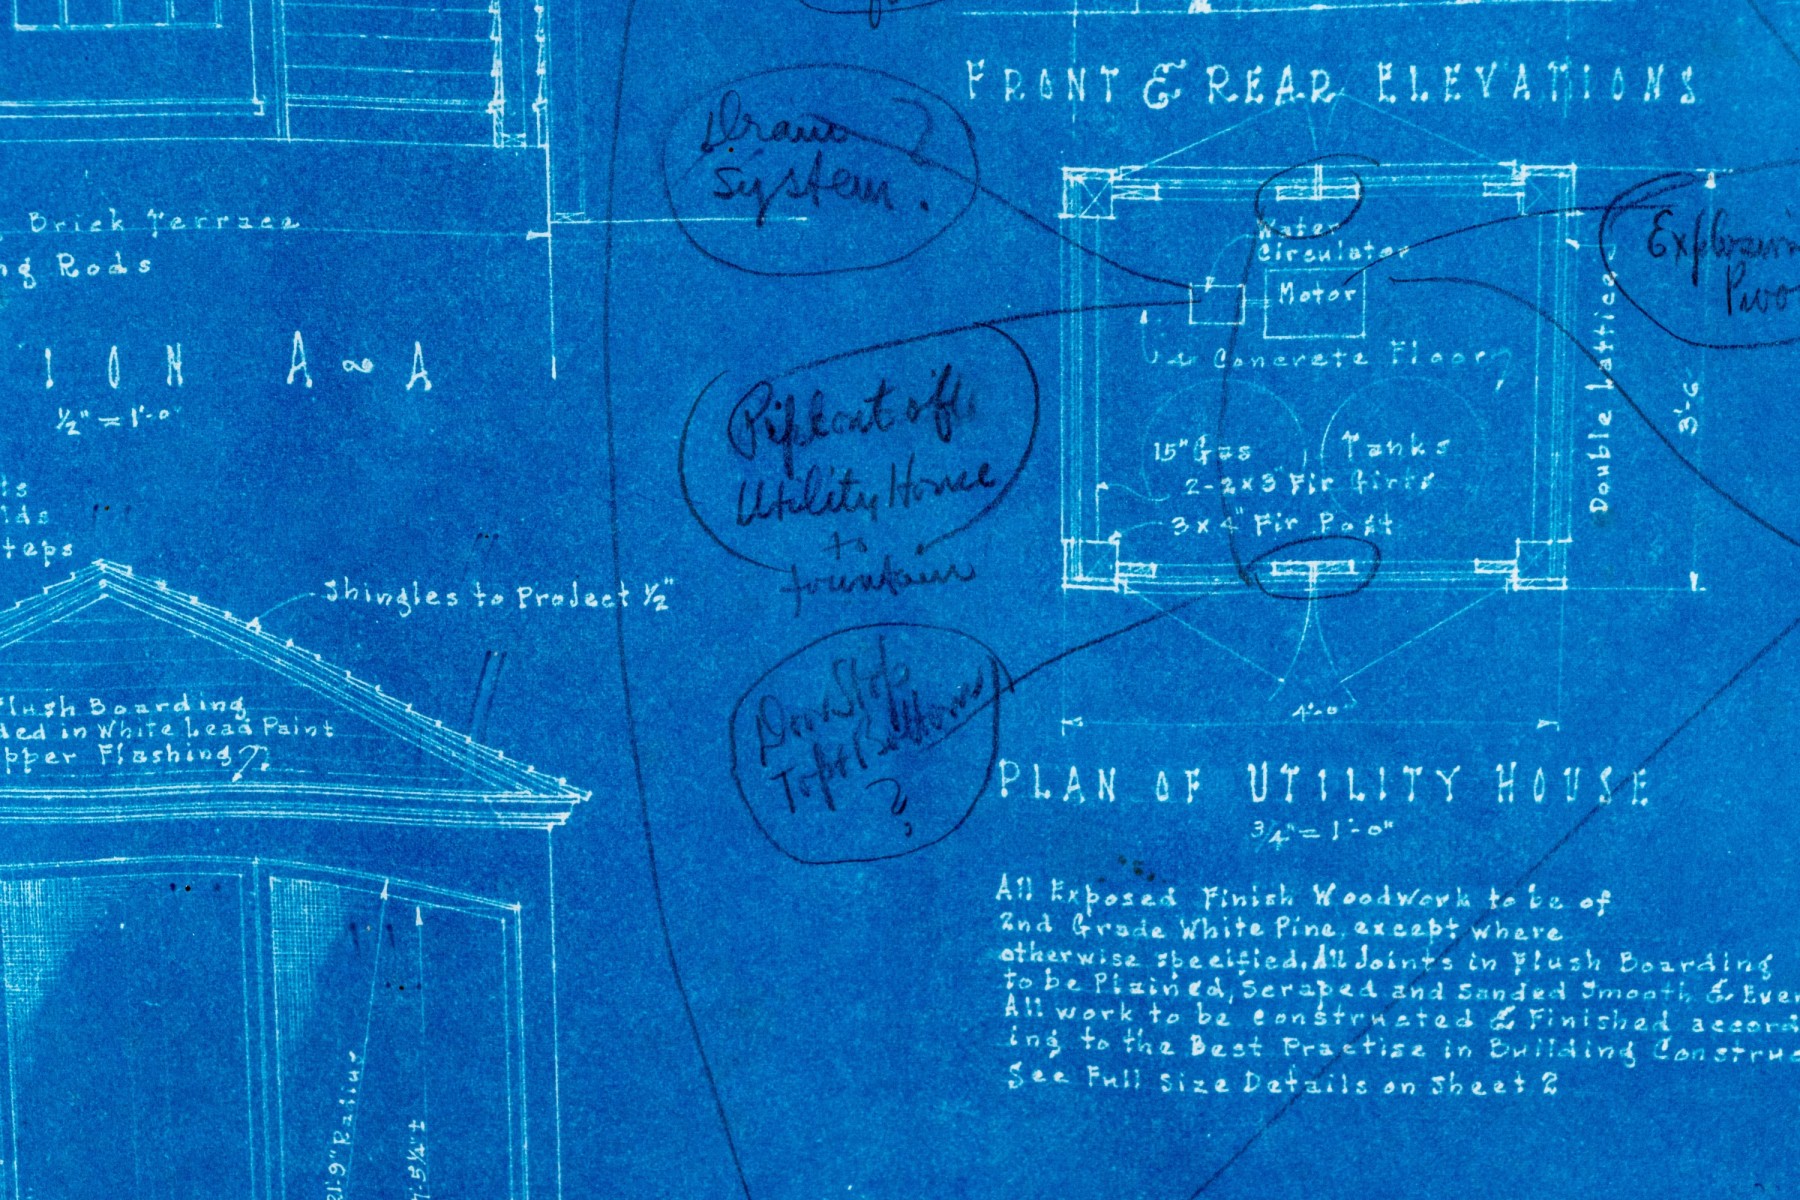 FRONT & REAR ELEVATIONS
Drain ?
System.
Brick Terrace
ng Rods
ION A-A
½" = 1'-0"
Water
Circulator
Motor
Concrete Floor
15" Gas Tanks
2-2x3" Fir Girts
3x4" Fir Post
Double Lattice
3'-6
4'-0"
Utility House
to
fountain
ts
lds
teps
Shingles to Project ½"
Flush Boarding
ded in White Lead Paint
pper Flashing
Door Stop
Top & Bottom
?
PLAN OF UTILITY HOUSE
¾" = 1'-0"
All Exposed Finish Woodwork to be of
2nd Grade White Pine, except where
otherwise specified. All Joints in Flush Boarding
to be Plained, Scraped and Sanded Smooth & Even
All work to be constructed & Finished accord
ing to the Best Practise in Building Construc
See Full Size Details on Sheet 2